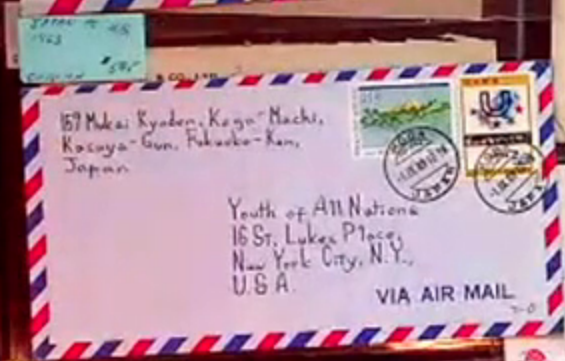 JAPAN
1963
CO., LTD.
169 Mukai Kyoden, Koga-Machi,
Kasuya-Gun, Fukuoka-Ken,
Japan
KOGA
JAPAN
JAPAN
Youth of All Nations
16 St. Lukes Place,
New York City, N.Y.,
U.S.A.
VIA AIR MAIL